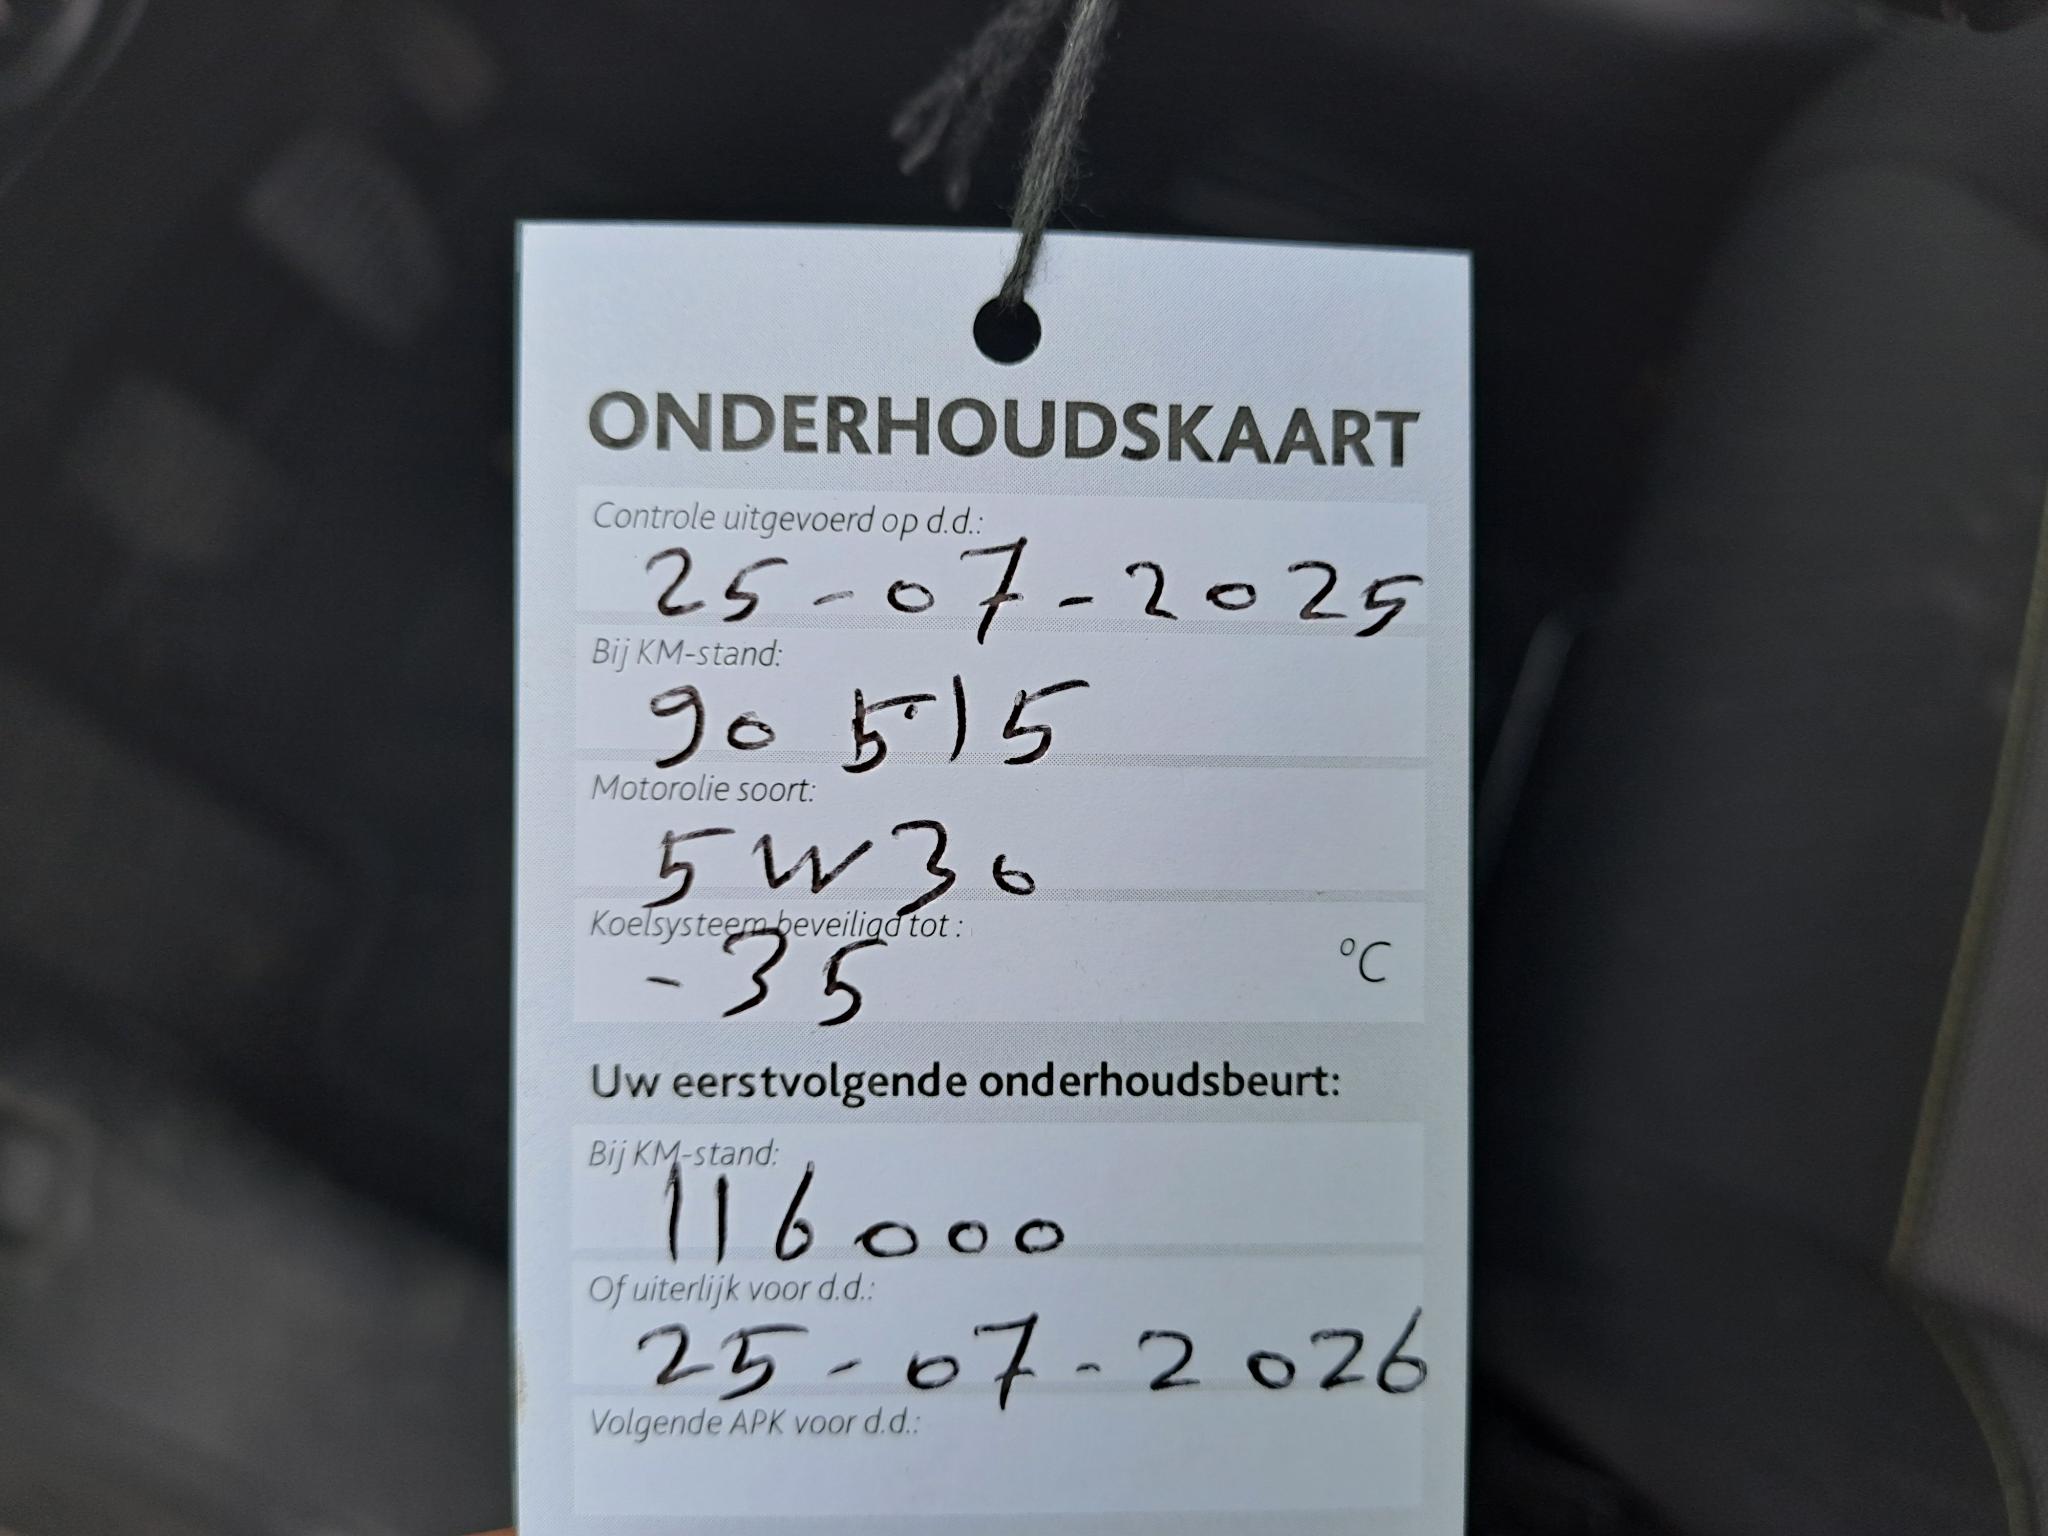 ONDERHOUDSKAART
Controle uitgevoerd op d.d.:
25-07-2025
Bij KM-stand:
90 515
Motorolie soort:
5W30
Koelsysteem beveiligd tot :
-35 °C
Uw eerstvolgende onderhoudsbeurt:
Bij KM-stand:
116000
Of uiterlijk voor d.d.:
25-07-2026
Volgende APK voor d.d.: